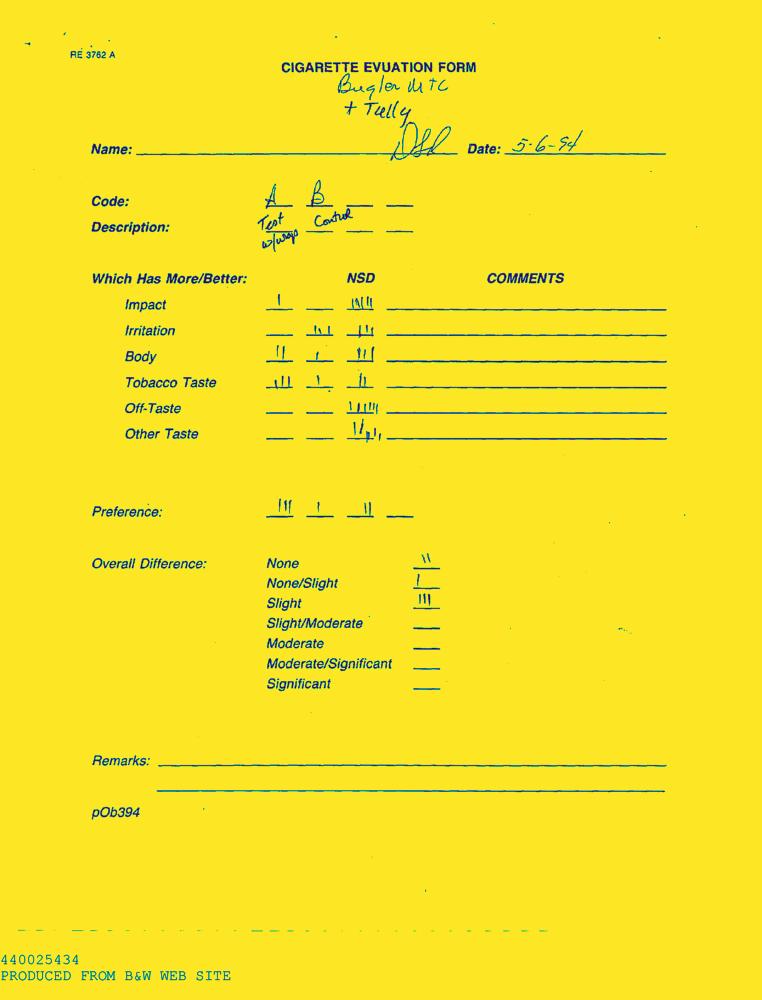 RE 3762 A
CIGARETTE EVUATION FORM
Bugler MTC
+ Tully
Name: Date: 5-6-94
Code: A B
Description: Test Control
w/wrap
Which Has More/Better: NSD COMMENTS
Impact I IIIII
Irritation III III
Body II I III
Tobacco Taste III I II
Off-Taste IIIIII
Other Taste
Preference: III I II
Overall Difference: None II
None/Slight I
Slight III
Slight/Moderate
Moderate
Moderate/Significant
Significant
Remarks:
pOb394
440025434
PRODUCED FROM B&W WEB SITE